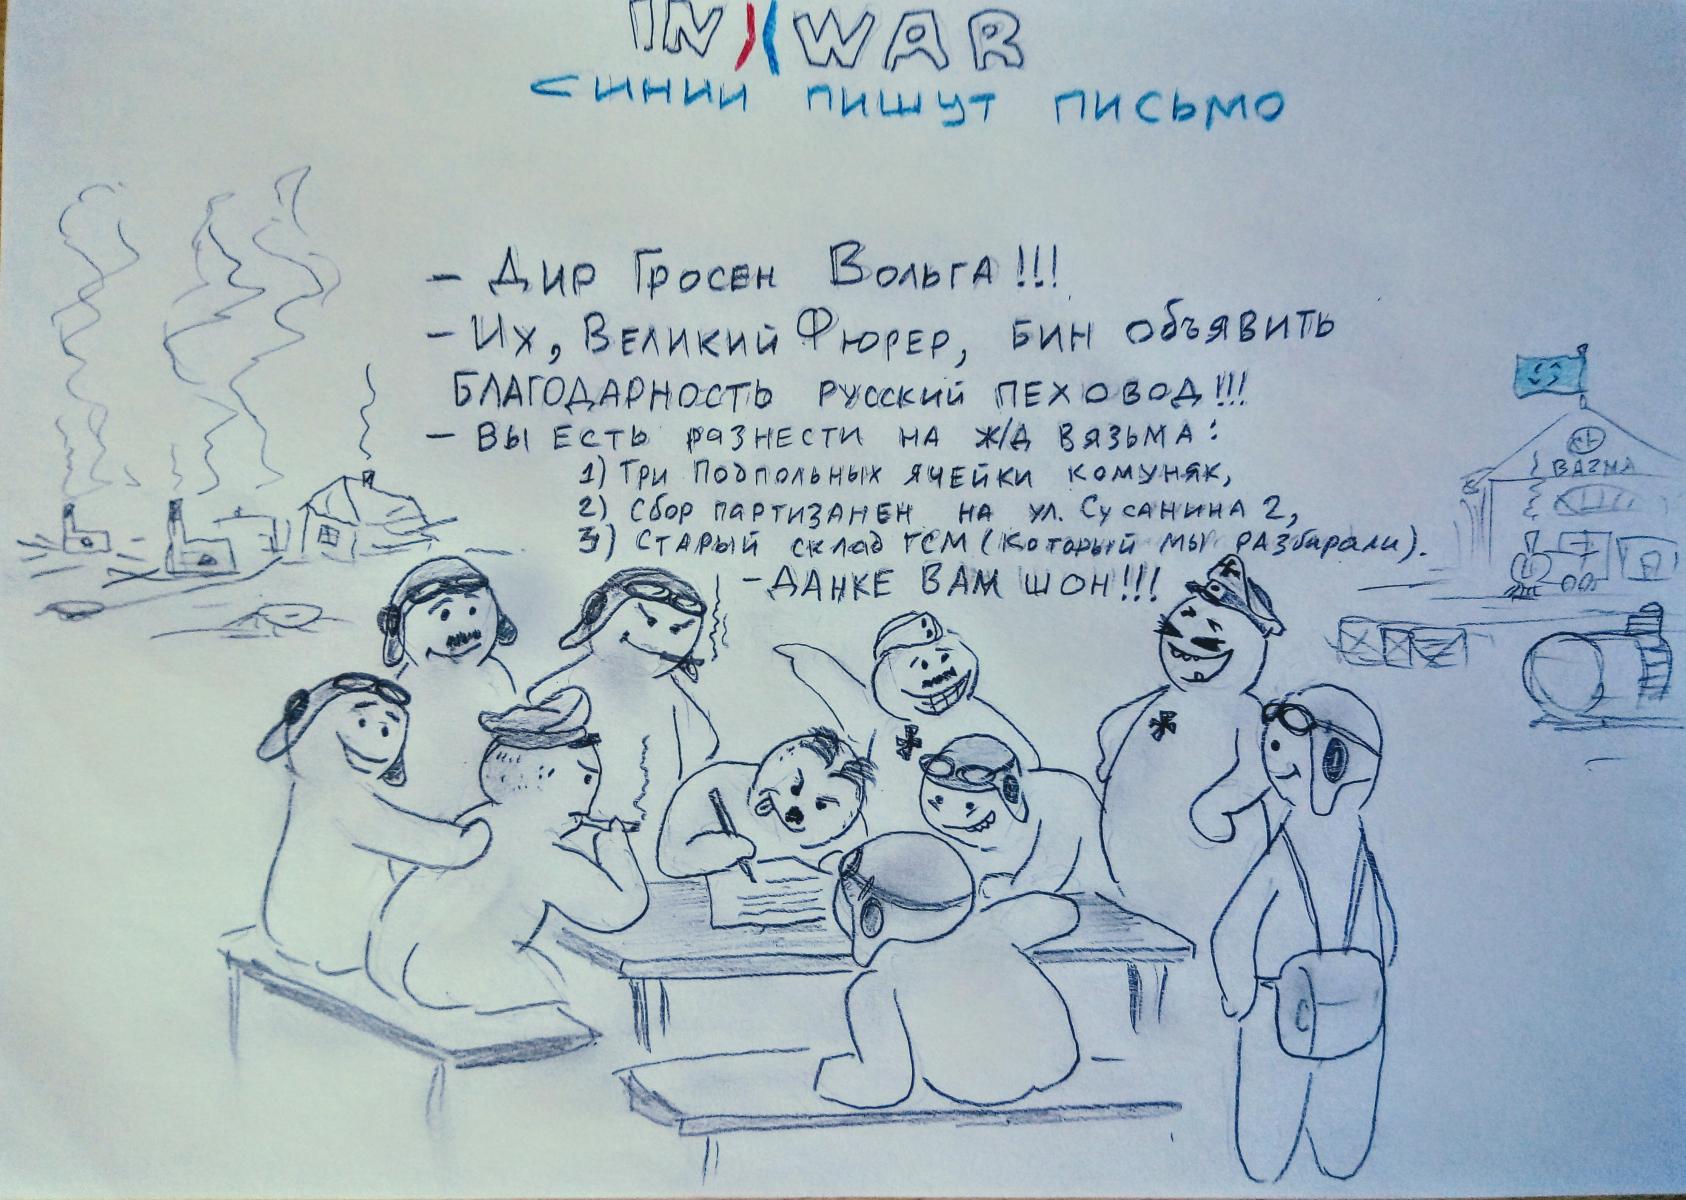 IN WAR
синии пишут письмо
- Дир Гросен Вольга!!!
- Их, Великий Фюрер, бин объявить
благодарность русский пеховод!!!
- Вы есть разнести на ж/д Вязьма:
1) Три подпольных ячейки комуняк,
2) Сбор партизанен на ул. Сусанина 2,
3) Старый склад ГСМ (который мы разбирали).
- Данке вам шон!!!
ВАZМА